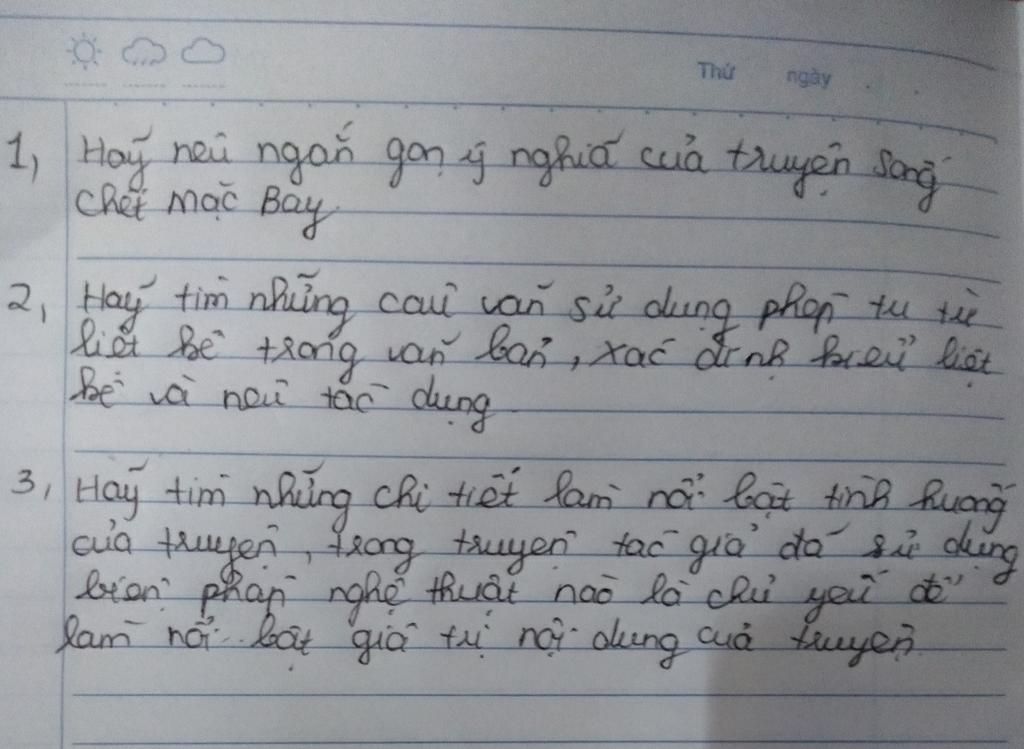 Thứ ngày
1, Hãy nêu ngắn gọn ý nghĩa của truyện sống
chết mặc Bay
2, Hãy tìm những câu văn sử dụng phép tu từ
liệt kê trong văn bản, xác định kiểu liệt
kê và nêu tác dụng
3, Hãy tìm những chi tiết làm nổi bật tình huống
của truyện, trong truyện tác giả đã sử dụng
biện pháp nghệ thuật nào là chủ yếu để
làm nổi bật giá trị nội dung của truyện